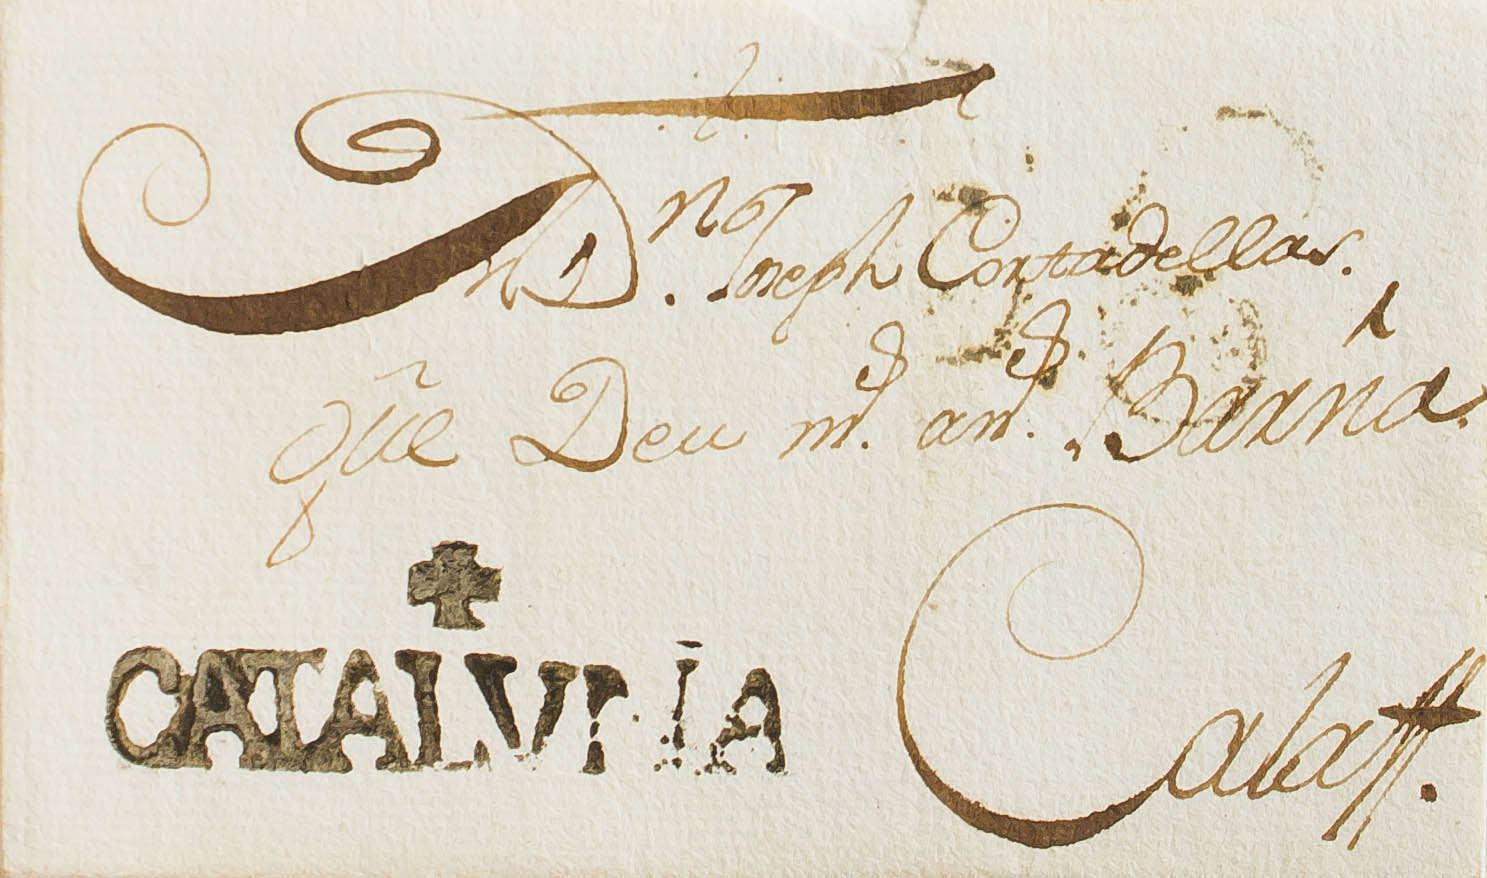 A Dn Joseph Cortadellas.
qũe Deu m.s an.s Barna.
CATALUÑA
Calaff.